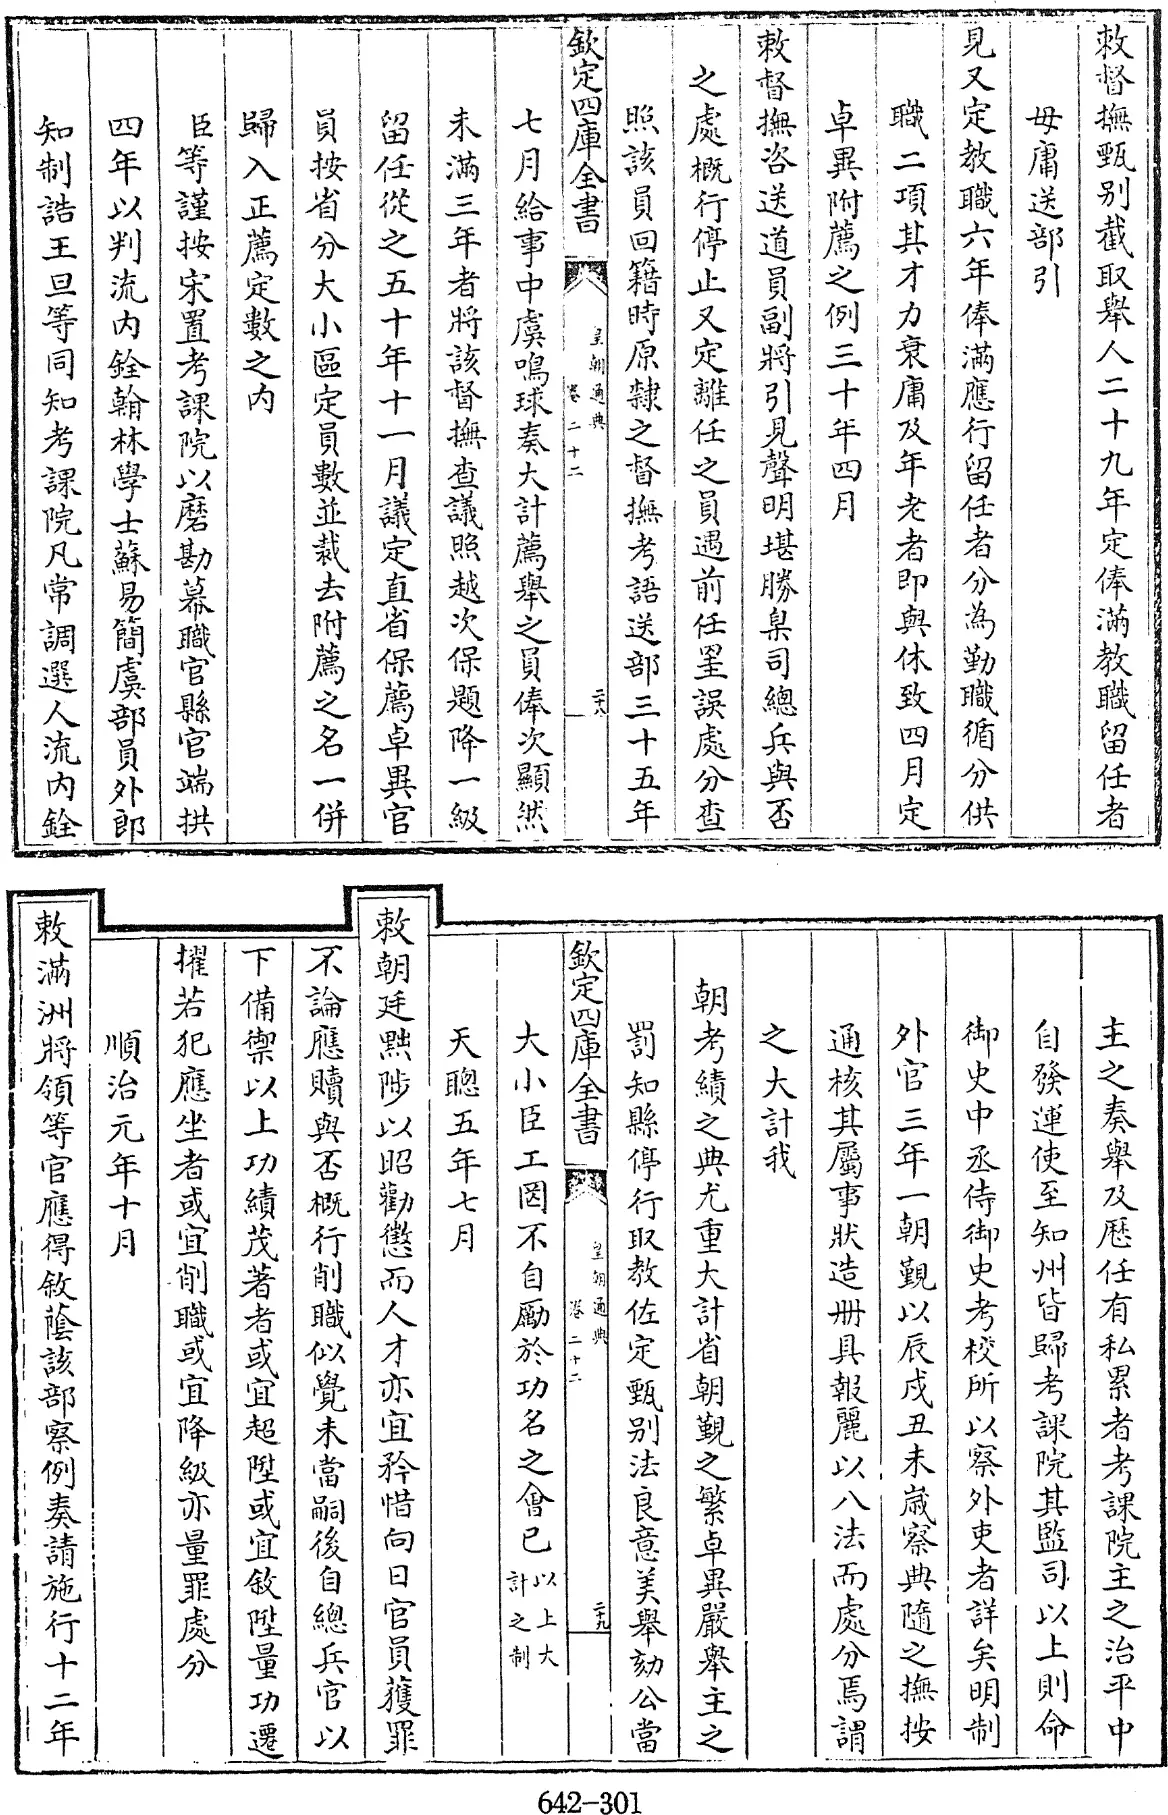 敕督撫甄别截取舉人二十九年定俸滿教職留任者
毋庸送部引
見又定教職六年俸滿應行留任者分為勤職循分供
職二項其才力衰庸及年老者即與休致四月定
卓異附薦之例三十年四月
敕督撫咨送道員副將引見聲明堪勝臬司總兵與否
之處概行停止又定離任之員遇前任罣誤處分查
照該員回籍時原隸之督撫考語送部三十五年
欽定四庫全書
皇朝通典
卷二十二
二十八
七月給事中虞鳴球奏大計薦舉之員俸次顯然
未滿三年者將該督撫查議照越次保題降一級
留任從之五十年十一月議定直省保薦卓異官
員按省分大小區定員數並裁去附薦之名一併
歸入正薦定數之内
臣等謹按宋置考課院以磨勘幕職官縣官端拱
四年以判流内銓翰林學士蘇易簡虞部員外郎
知制誥王旦等同知考課院凡常調選人流内銓
主之奏舉及歷任有私累者考課院主之治平中
自發運使至知州皆歸考課院其監司以上則命
御史中丞侍御史考校所以察外吏者詳矣明制
外官三年一朝覲以辰戌丑未嵗察典隨之撫按
通核其屬事狀造册具報麗以八法而處分焉謂
之大計我
朝考績之典尤重大計省朝覲之繁卓異嚴舉主之
罰知縣停行取教佐定甄别法良意美舉劾公當
欽定四庫全書
皇朝通典
卷二十二
二十九
大小臣工罔不自勵於功名之會已以上大
計之制
天聰五年七月
敕朝廷黜陟以昭勸懲而人才亦宜矜惜向日官員獲罪
不論應贖與否概行削職似覺未當嗣後自總兵官以
下備禦以上功績茂著者或宜超陞或宜敘陞量功遷
擢若犯應坐者或宜削職或宜降級亦量罪處分
順治元年十月
敕滿洲將領等官應得敘蔭該部察例奏請施行十二年
642-301